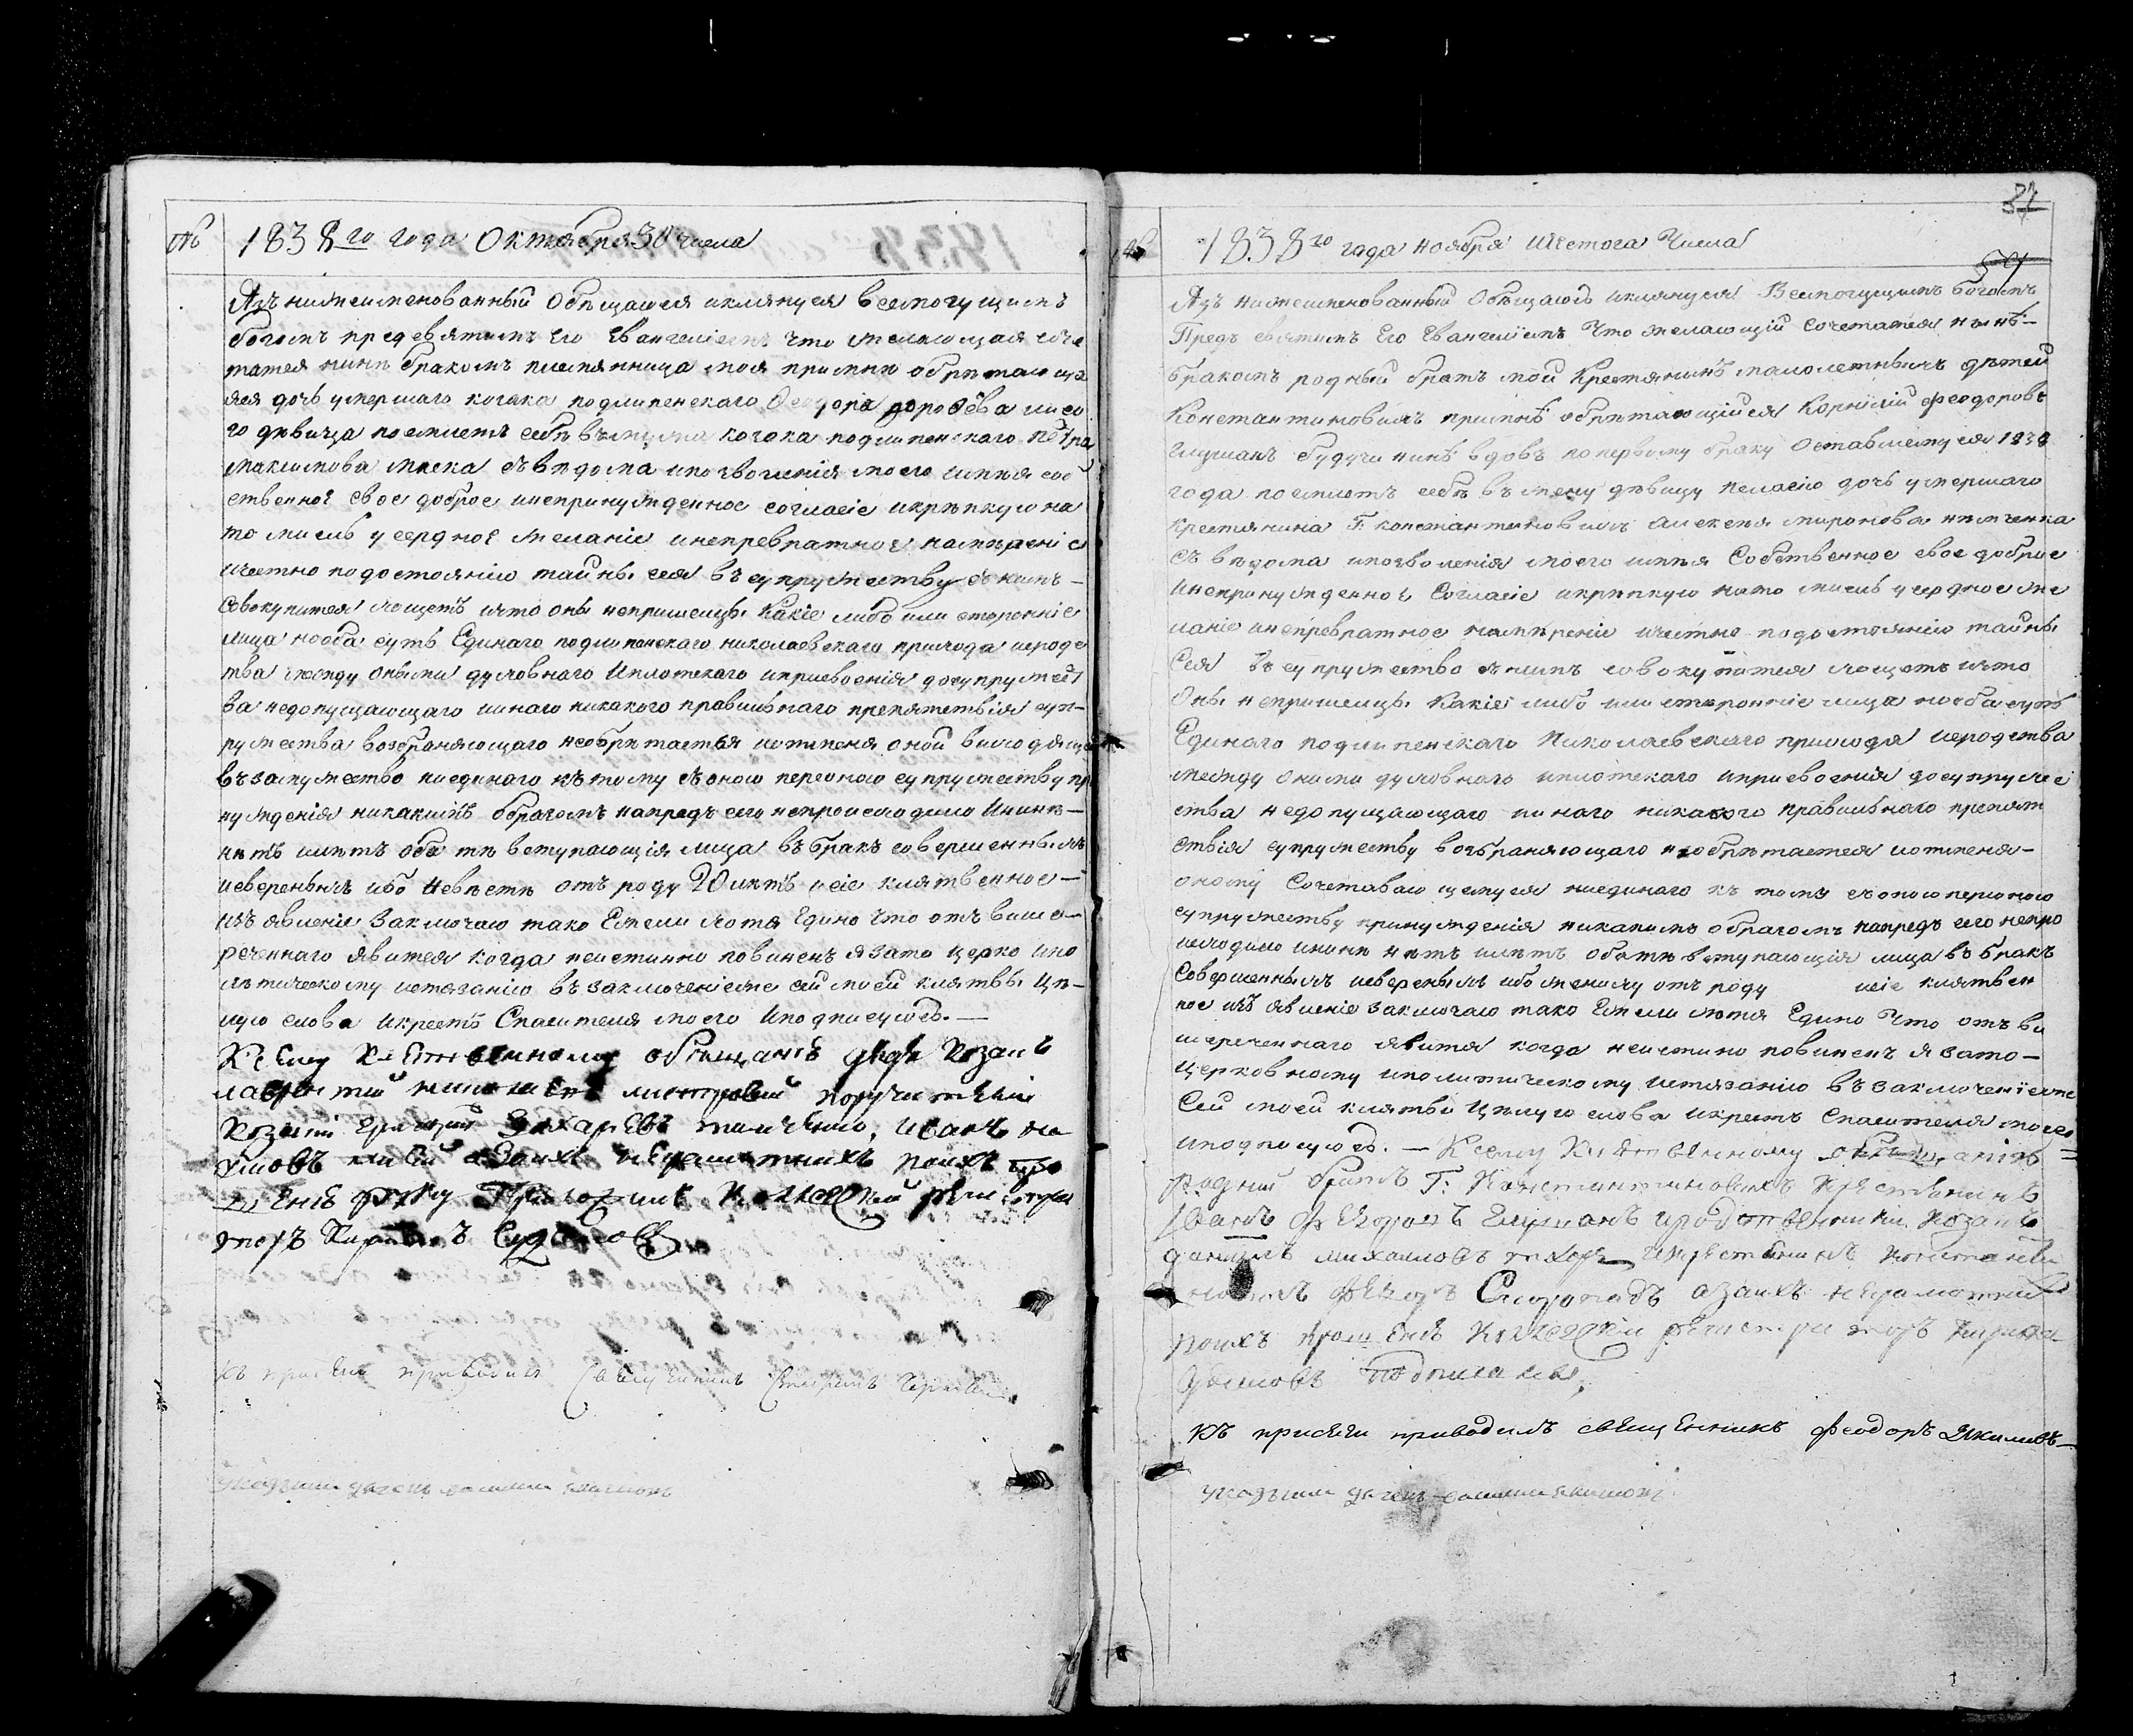 № 1838го года Октября 30 числа
Азъ нижеименованный обѣщаюся иклянуся всемогущимъ
богомъ предсвятымъ Его Евангелiемъ что желающая соче
татся нинѣ бракомъ племянница моя примнѣ обрѣтающа
яся дочь умершаго козака подлипенскаго Феодора
го дѣвица поемлетъ себѣ вмужа козака подлипенскаго Петра
Максимова съвѣдома ипозволенiя моего имѣя соб
ственное свое доброе инепринужденное согласiе икрѣпкую на
то мисль усердное желанiе инепревратное намѣренiе
ичестно подостоянiю тайны сея въсупружеству снимъ
совокупитея хощетъ ичто оны непришелцы какiе либо или стороннiе
лица нооба суть Единаго подлипенскаго николаевскаго прихода иродс
тва между оными духовнаго иплотскаго иприсвоенiя досупружест
ва недопущающаго ииного никакого правилнаго препятствiя суп
ружества возбраняющаго необрѣтается иотменя оной виходящей
въ замужество ниединаго кътому съоною персоною супружеству при
нужденiя никакимъ образомъ напредъ сего непроисходило ининѣ
нѣтъ имѣтъ оба тѣ вступающiя лица въбракъ совершенныхъ
исвереныхъ ибо невѣстѣ отъ роду 20 лѣтъ исiе клятвенное
изъявленiе заключаю тако Ежели хотя Едино что отъ више
реченнаго явится когда неистинно повиненъ я зато церко ипо
литическому истязанiю въ заключенiемже сей моей клятвы цѣ
лую слова икрестъ Спасителя моего иподписуюсь.
Ксему клятвенному обѣщанiю дядя козакъ
лаврентiй поручители
козаки Григорiй Захаревъ Иванъ
азаихъ неграмотнихъ поихъ про
шенiю руку Приложилъ Колежскiй регистра
торъ
къ присягѣ приводилъ Священникъ
указъ
37
59
1838го года ноября шестога числа
Азъ нижеименованный обѣщаюсь иклянуся Всемогущимъ богомъ
Предъ святымъ Его Евангелiемъ Что желающiй сочетатся нынѣ
бракомъ родный братъ мой крестянинъ малолетныхъ дѣтей
Константиновихъ примнѣ обрѣтающiйся Корнилiй Феодоровъ
Глушакъ будучи нинѣ вдовъ попервому браку оставшемуся 1838
года поемлетъ себѣ въ жену дѣвицу Пелагiю дочь умершаго
крестянина Г. константиновихъ алексея миронова
съ вѣдома ипозволенiя моего имѣя Собственное свое доброе
инепринужденное Согласiе икрѣпкую нато мисль усердное же
ланiе инепревратное намѣренiе ичестно подостоянiю тайны
Сея въ супружество снимъ совокупится хощетъ ичто
оны непришелцы какiе либо или стороннiе лица нооба суть
Единаго подлипенскаго Николаевскаго прихода иродства
между оними духовнаго иплотскаго иприсвоенiя досупруже
ства недопущающаго ииного никакого правилнаго препят
ствiя супружеству возбраняющаго необрѣтается иотменя
оному Сочетавающемуся ниединаго къ тому съоною персоною
супружеству принужденiя никакимъ образомъ напредъ сего непро
исходило ининѣ нѣтъ имѣтъ обатѣ вступающiя лица въ бракъ
Совершенныхъ исвереныхъ ибо жениху отъ роду исiе клятвен
ное изъявленiе заключаю тако Ежели хотя Едино Что отъ ви
шереченнаго явится когда неистинно повиненъ я зато
церковному иполитическому истязанiю въ заключенiемже
Сей моей клятвы цѣлую слова икрестъ Спасителя моего
иподписуюсь. Ксему Клятвенному обѣщанiю
родний братъ Г. Константиновихъ крестянинъ
Иванъ Федоровъ Глушакъ иродственники козакъ
данiилъ михаиловъ икрестянинъ константи
новихъ Федоръ азаихъ неграмотних
поихъ прошенiю Колежскiй регистраторъ
Подписалъся
къ присяги приводилъ священникъ Феодоръ
указъ